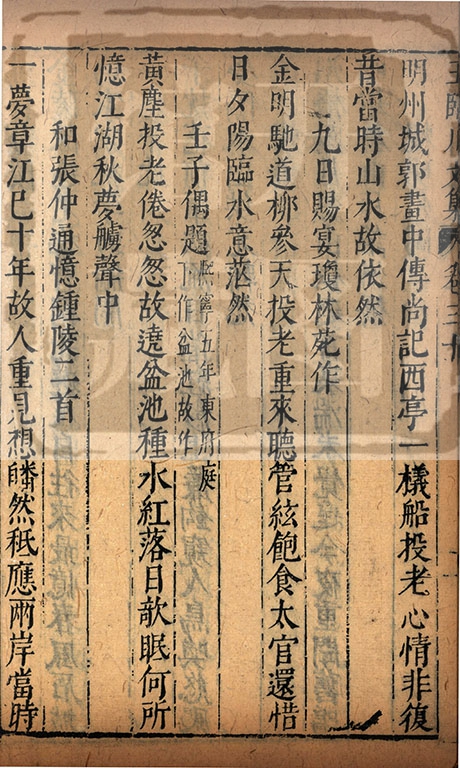 王臨川文集 卷三十
明州城郭畫中傳尚記西亭一檥船投老心情非復
昔當時山水故依然
九日賜宴瓊林苑作
金明馳道柳參天投老重來聽管絃飽食太官還惜
日夕陽臨水意茫然
壬子偶題
熙寧五年東府庭
下作盆池故作
黃塵投老倦怱怱故遶盆池種水紅落日欹眠何所
憶江湖秋夢艣聲中
和張仲通憶鍾陵二首
一夢章江巳十年故人重見想皤然秪應兩岸當時